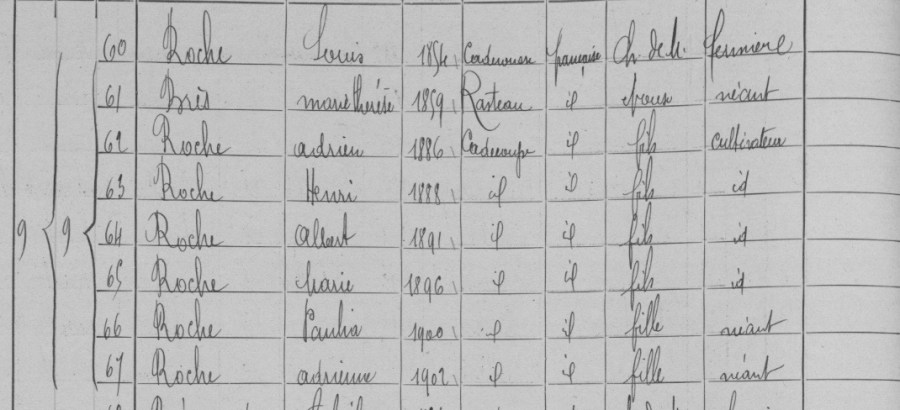 9 9 60 Roche Louis 1854 française Ch de M. fermière
61 Brès marie thérèse 1859 Rasteau id épouse néant
62 Roche adrien 1886 id fils cultivateur
63 Roche Henri 1888 id id fils id
64 Roche albert 1891 id id fils id
65 Roche Marie 1896 id id fils id
66 Roche Paulia 1900 id id fille néant
67 Roche adrienne 1902 id id fille néant